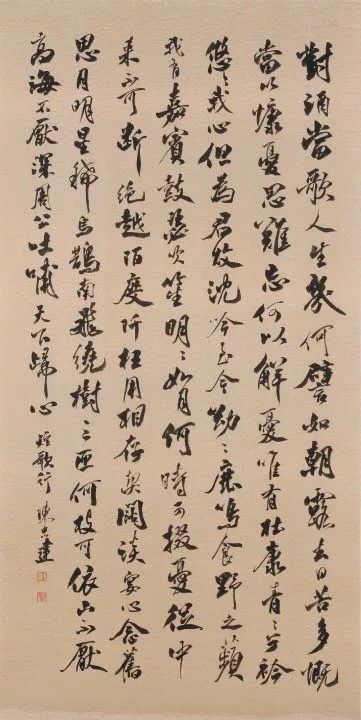 對酒當歌人生幾何譬如朝露去日苦多慨
當以慷憂思難忘何以解憂唯有杜康青〻子衿
悠〻我心但為君故沈吟至今呦〻鹿鳴食野之蘋
我有嘉賓鼓瑟吹笙明〻如月何時可掇憂從中
来不可斷絕越陌度阡枉用相存契闊談宴心念舊
恩月明星稀烏鵲南飛繞樹三匝何枝可依山不厭
高海不厭深周公吐哺天下歸心 短歌行 陳忠建